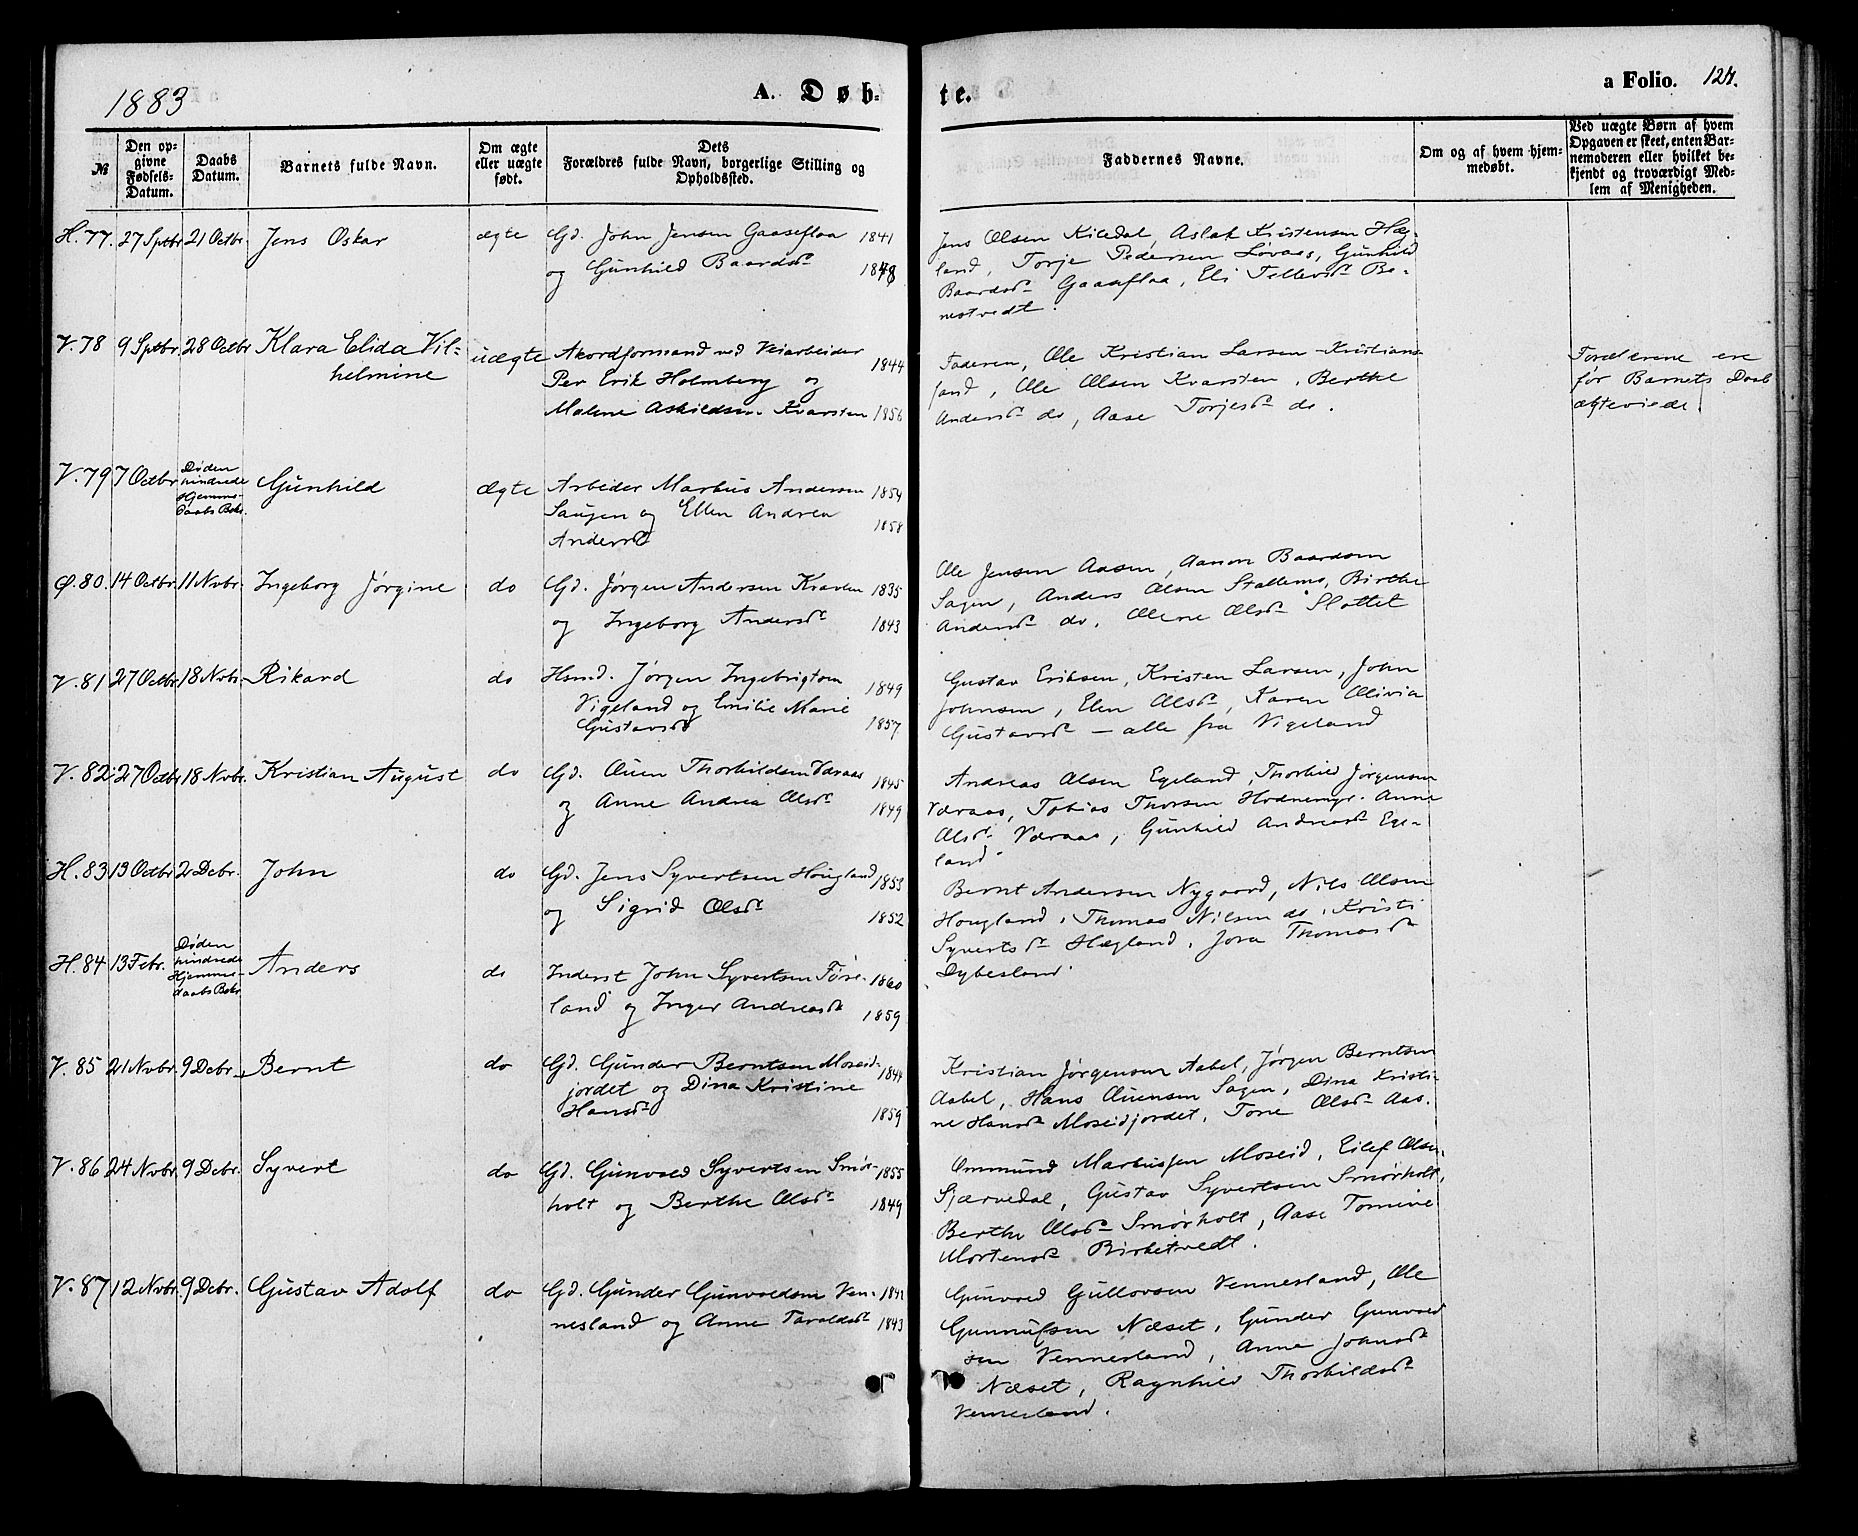 1883
A. Døb-
te.
a Folio. 124.
№
Den op-
givne
Fødsels-
Datum.
Daabs
Datum.
Barnets fulde Navn.
Om ægte
eller uægte
født.
Dets
Forældres fulde Navn, borgerlige Stilling og
Opholdssted.
Faddernes Navne.
Om og af hvem hjem-
medøbt.
Ved uægte Børn af hvem
Opgaven er skeet, enten Bar-
nemoderen eller hvilket be-
kjendt og troværdigt Med-
lem af Menigheden.
H. 77. 27 Sptbr 21 Octbr. Jens Oskar ægte Gd. John Jensen Gaaseflaa 1841
og Gunhild Baardsd. 1848
Jens Olsen Kiledal, Aslak Kristensen Hæg-
land, Torje Pedersen Løvaas, Gunhild
Baardsd. Gaaseflaa, Eli Tellevsd. Ro-
nestvedt.
V. 78 9 Sptbr. 28 Octbr Klara Elida Vil-
helmine
uægte Akordformand ved Veiarbeider 1844
Per Erik Holmberg og
Malene Askildsen Kvarsten 1856
Faderen, Ole Kristian Larsen Kristians-
sand, Ole Olsen Kvarsten, Berthe
Andersd. do, Aase Torjesd. do.
Forældrene ere
før Barnets Daab
ægteviede.
V. 79 7 Octbr Døden
hindrede
Hjemme-
daabs Bekr.
Gunhild ægte Arbeider Markus Andersen 1854
Saugen og Ellen Andrea 1858
Andersd.
Ø. 80. 14 Octbr. 11 Novbr. Ingeborg Jørgine do Gd. Jørgen Andersen Kvarten 1835
og Ingeborg Andersd. 1843
Ole Jensen Aasen, Aanon Baardsen
Sagen, Anders Olsen Stallemo, Birthe
Andersd. do, Olene Olsd. Slottet
V. 81 27 Octbr 18 Nvbr. Rikard do Hsmd. Jørgen Ingebrigtsen 1849
Vigeland og Emilie Marie
Gustavsd. 1857.
Gustav Eriksen, Kristen Larsen, John
Johnsen, Elen Olsd., Karen Olivia
Gustavsd. – alle fra Vigeland
V. 82 27 Octbr 18 Nvbr. Kristian August do Gd. Ouen Thorkildsen Væraas 1845
og Anne Andrea Olsd. 1849
Andreas Olsen Egeland, Thorkild Jørgensen
Væraas, Tobias Thorsen Hodnemyr. Anne
Olsd. Væraas, Gunhild Andreasd. Ege-
land.
H. 83 13 Octbr 2 Debr. John do Gd. Jens Syvertsen Hougland 1853
og Sigrid Olsd. 1852
Bernt Andersen Nygaard, Nils Olsen
Hougland, Thomas Nilsen do, Kristi
Syvertsd. Hægland, Jora Thomasd.
Dybesland.
H. 84 13 Febr. Døden
hindrede
Hjemme-
daabs Bekr
Anders do Inderst John Syvertsen Føre- 1860
land og Inger Andreasd. 1859
V. 85 21 Nvbr. 9 Debr. Bernt do Gd. Gunder Berntsen Moseid- 1844
jordet og Dina Kristine
Hansd. 1859
Kristian Jørgensen Aabel, Jørgen Berntsen
Aabel, Hans Ouensen Sagen, Dina Kristi-
ne Hansd. Moseidjordet, Tone Olsd. Aas.
V. 86 24 Nvbr. 9 Debr. Syvert do Gd. Gunvald Syvertsen Smør- 1855
holt og Berthe Olsd. 1849
Ommund Markussen Moseid, Eilef Olsen
Skjævedal, Gustav Syvertsen Smørholt,
Berthe Olsd. Smørholt, Aase Tomine
Mortensd. Birketvedt.
V. 87 12 Nvbr. 9 Debr. Gustav Adolf do Gd. Gunder Gunvaldsen Ven- 1842
nesland og Anne Taraldsd. 1843
Gunvald Gullovsen Vennesland, Ole
Gunnufsen Næset, Gunder Gunvald
sen Vennesland, Anne Johnsd.
Næset, Ragnhild Thorkildsd.
Vennesland.